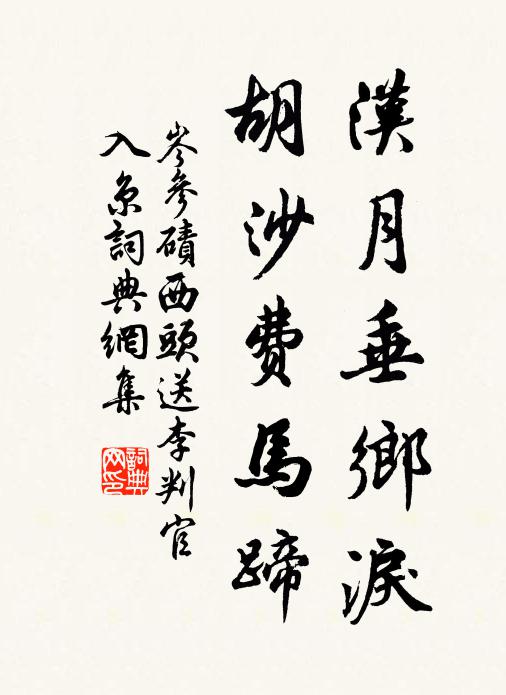 漢月垂鄉淚
胡沙費馬蹄
岑參磧西頭送李判官
入京詞典網集
詞典网印